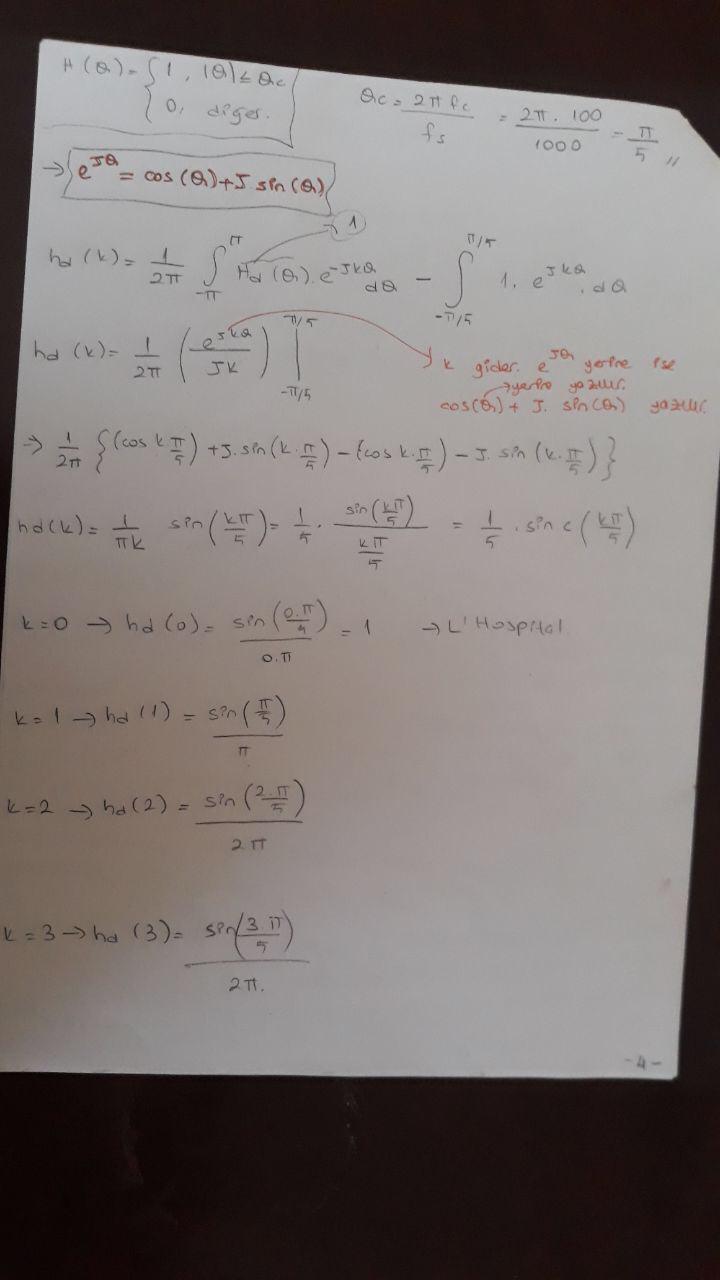 H(θ) = { 1, |θ| ≤ θc
0, diğer.
θc = 2π fc / fs = 2π . 100 / 1000 = π/5 //
→ e^Jθ = cos(θ) + J sin(θ)
→ 1
hd (k) = 1/2π ∫_-π^π Hd (θ). e^-Jkθ dθ - ∫_-π/5^π/5 1. e^Jkθ . dθ
hd (k) = 1/2π ( e^Jkθ / Jk ) |_-π/5^π/5
k gider. e^Jθ yerine ise
→ yerine yazılır.
cos(θ) + J. sin(θ) yazılır.
→ 1/2π { (cos k π/5) + J. sin(k. π/5) - (cos k. π/5) - J. sin (k. π/5) }
hd(k) = 1/πk sin(kπ/5) = 1/5 . sin(kπ/5) / kπ/5 = 1/5 . sin c (kπ/5)
k=0 → hd (0) = sin(0.π/5) / 0.π = 1 → L'Hospital
k=1 → hd (1) = sin(π/5) / π
k=2 → hd (2) = sin(2.π/5) / 2π
k=3 → hd (3) = sin(3.π/5) / 2π.
-4-